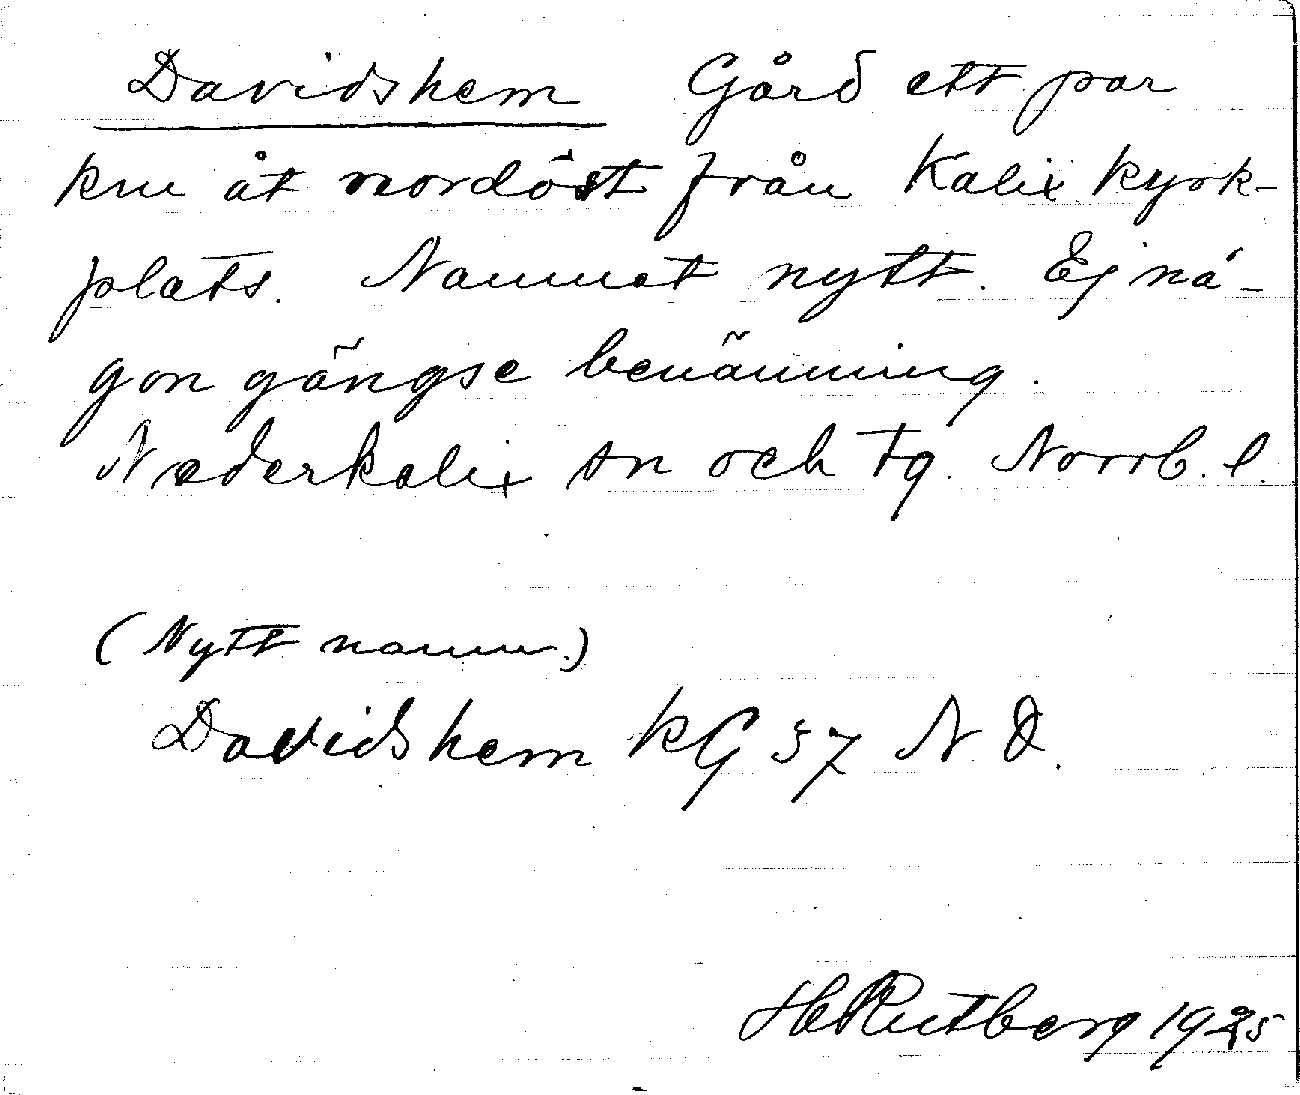 Davidshem Gård ett par
km åt nordöst från Kalix kyrk-
plats. Namnet nytt. Ej nå-
gon gängse benämning.
Nederkalix sn och tg. Norrb. l.
(Nytt namn.)
Davidshem KG 37 N D.
H Rutberg 1925